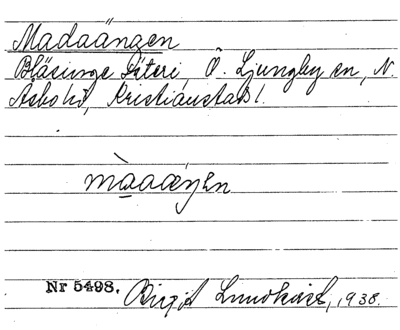 Madaängen
Bläsinge Säteri, Ö. Ljungby sn, N.
Åsbo hd, Kristianstads l.
màaæŋen
Nr 5498. Birgit Lundkvist, 1938.